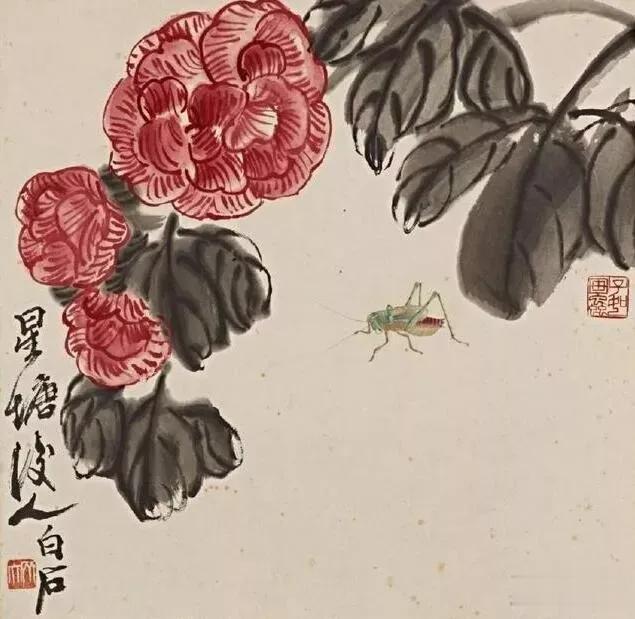 星塘後人白石